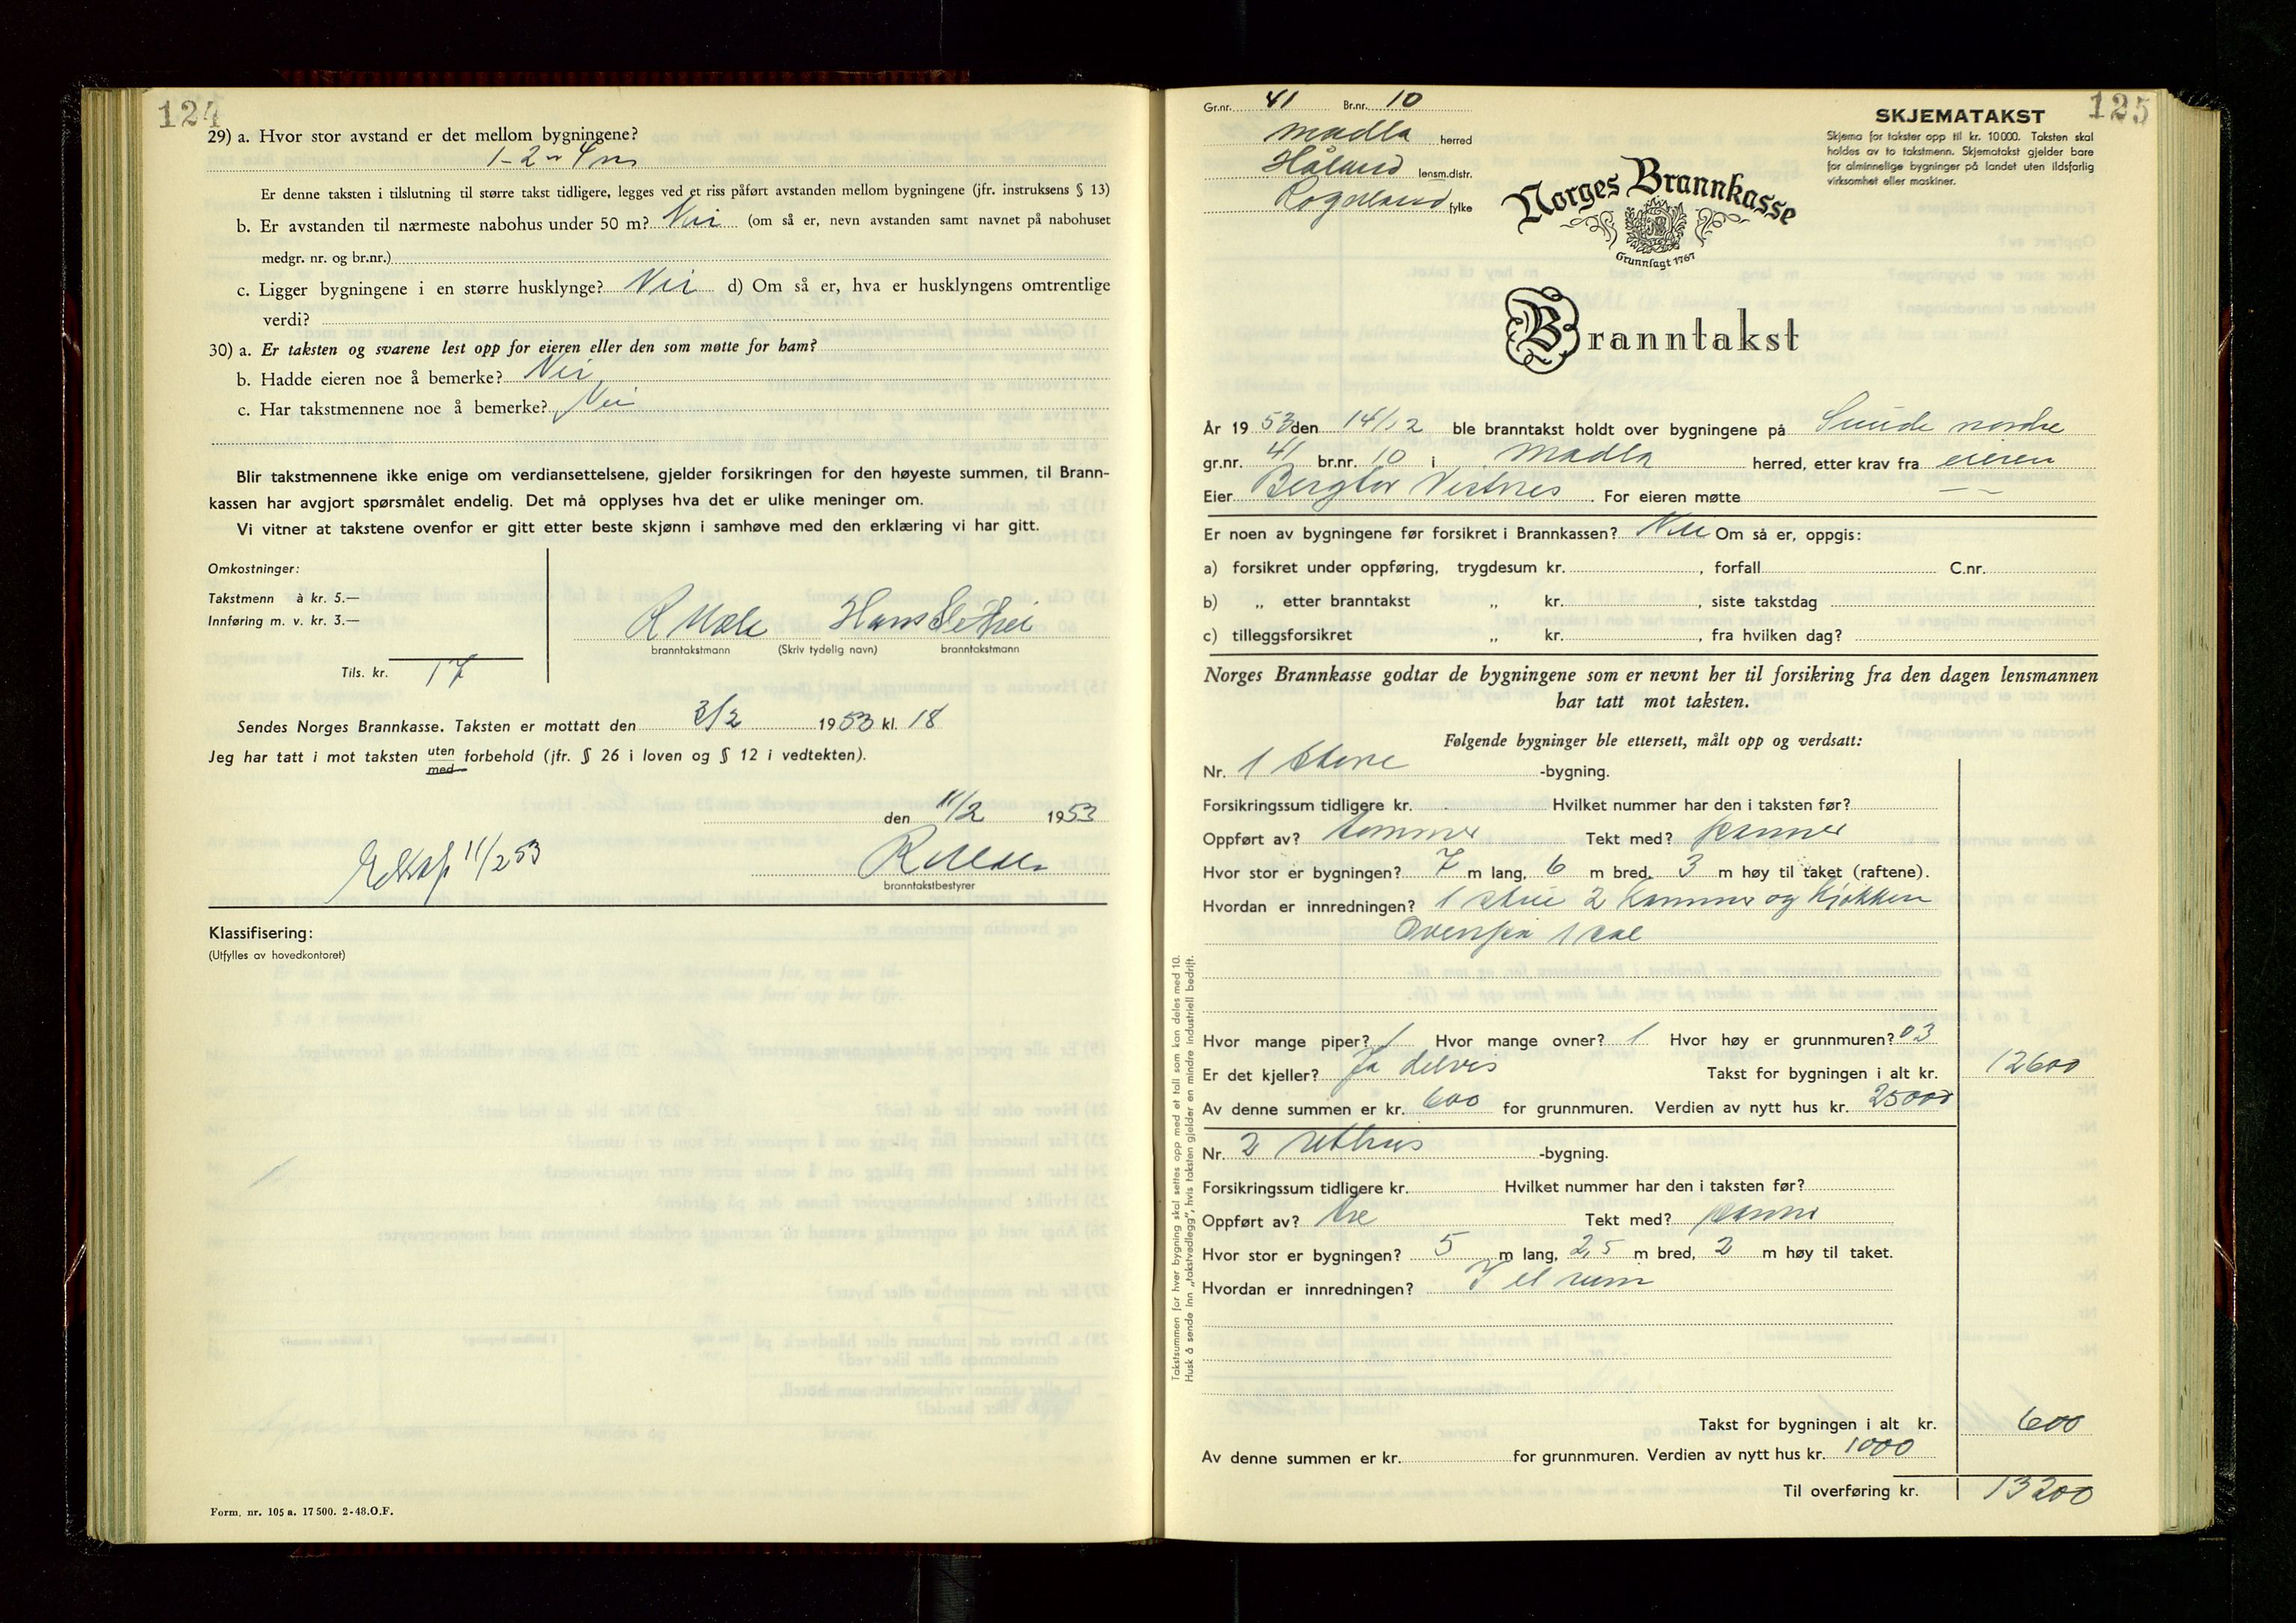 124
29) a. Hvor stor avstand er det mellom bygningene?
1-2 4 m
Er denne taksten i tilslutning til større takst tidligere, legges ved et riss påført avstanden mellom bygningene (jfr. instruksens § 13)
b. Er avstanden til nærmeste nabohus under 50 m? Nei (om så er, nevn avstanden samt navnet på nabohuset
medgr. nr. og br.nr.)
c. Ligger bygningene i en større husklynge? Nei d) Om så er, hva er husklyngens omtrentlige
verdi?
30) a. Er taksten og svarene lest opp for eieren eller den som møtte for ham?
b. Hadde eieren noe å bemerke? Nei
c. Har takstmennene noe å bemerke? Nei
Blir takstmennene ikke enige om verdiansettelsene, gjelder forsikringen for den høyeste summen, til Brann-
kassen har avgjort spørsmålet endelig. Det må opplyses hva det er ulike meninger om.
Vi vitner at takstene ovenfor er gitt etter beste skjønn i samhøve med den erklæring vi har gitt.
Omkostninger:
Takstmenn à kr. 5.—
Innføring m. v. kr. 3.—
Tils. kr. 17
R Hans
branntakstmann (Skriv tydelig navn) branntakstmann
Sendes Norges Brannkasse. Taksten er mottatt den 3/2 1953 kl. 18
Jeg har tatt i mot taksten uten
med forbehold (jfr. § 26 i loven og § 12 i vedtekten).
den 11/2 1953
11/2 53
branntakstbestyrer
Klassifisering:
(Utfylles av hovedkontoret)
Form. nr. 105 a. 17 500. 2-48. O.F.
125
Gr.nr. 41 Br.nr. 10
Madla herred
Håland lensm.distr.
Rogaland fylke
SKJEMATAKST
Skjema for takster opp til kr. 10 000. Taksten skal
holdes av to takstmenn. Skjematakst gjelder bare
for alminnelige bygninger på landet uten ildsfarlig
virksomhet eller maskiner.
Norges Brannkasse
Grunnlagt 1767
Branntakst
År 19 53 den 14/12 ble branntakst holdt over bygningene på Sunde nordre
gr.nr. 41 br.nr. 10 i Madla herred, etter krav fra eieren
Eier Bergtor Vestnes For eieren møtte — —
Er noen av bygningene før forsikret i Brannkassen? Nei Om så er, oppgis:
a) forsikret under oppføring, trygdesum kr. , forfall C.nr.
b) „ etter branntakst „ kr. , siste takstdag
c) tilleggsforsikret „ kr. , fra hvilken dag?
Norges Brannkasse godtar de bygningene som er nevnt her til forsikring fra den dagen lensmannen
har tatt mot taksten.
Følgende bygninger ble ettersett, målt opp og verdsatt:
Nr. 1 -bygning.
Forsikringssum tidligere kr. Hvilket nummer har den i taksten før?
Oppført av? tømmer Tekt med? panner
Hvor stor er bygningen? 7 m lang, 6 m bred, 3 m høy til taket (raftene).
Hvordan er innredningen? 1 stue 2 kammer og kjøkken
Ovenpå 1 sal
Hvor mange piper? 1 Hvor mange ovner? 1 Hvor høy er grunnmuren? 03
Er det kjeller? Ja delvis Takst for bygningen i alt kr. 12600
Av denne summen er kr. 600 for grunnmuren. Verdien av nytt hus kr. 25000
Nr. 2 uthus -bygning.
Forsikringssum tidligere kr. Hvilket nummer har den i taksten før?
Oppført av? tre Tekt med? panner
Hvor stor er bygningen? 5 m lang, 2,5 m bred, 2 m høy til taket.
Hvordan er innredningen? I et rum
Takst for bygningen i alt kr. 600
Av denne summen er kr. for grunnmuren. Verdien av nytt hus kr. 1000
Til overføring kr. 13200
Takstsummen for hver bygning skal settes opp med et tall som kan deles med 10.
Husk å sende inn „takstvedlegg", hvis taksten gjelder en mindre industriell bedrift.